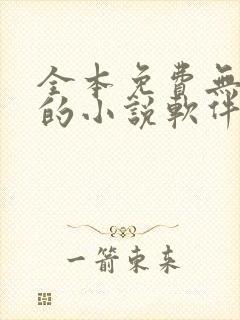 全本免費無
的小說軟件
一箭東来